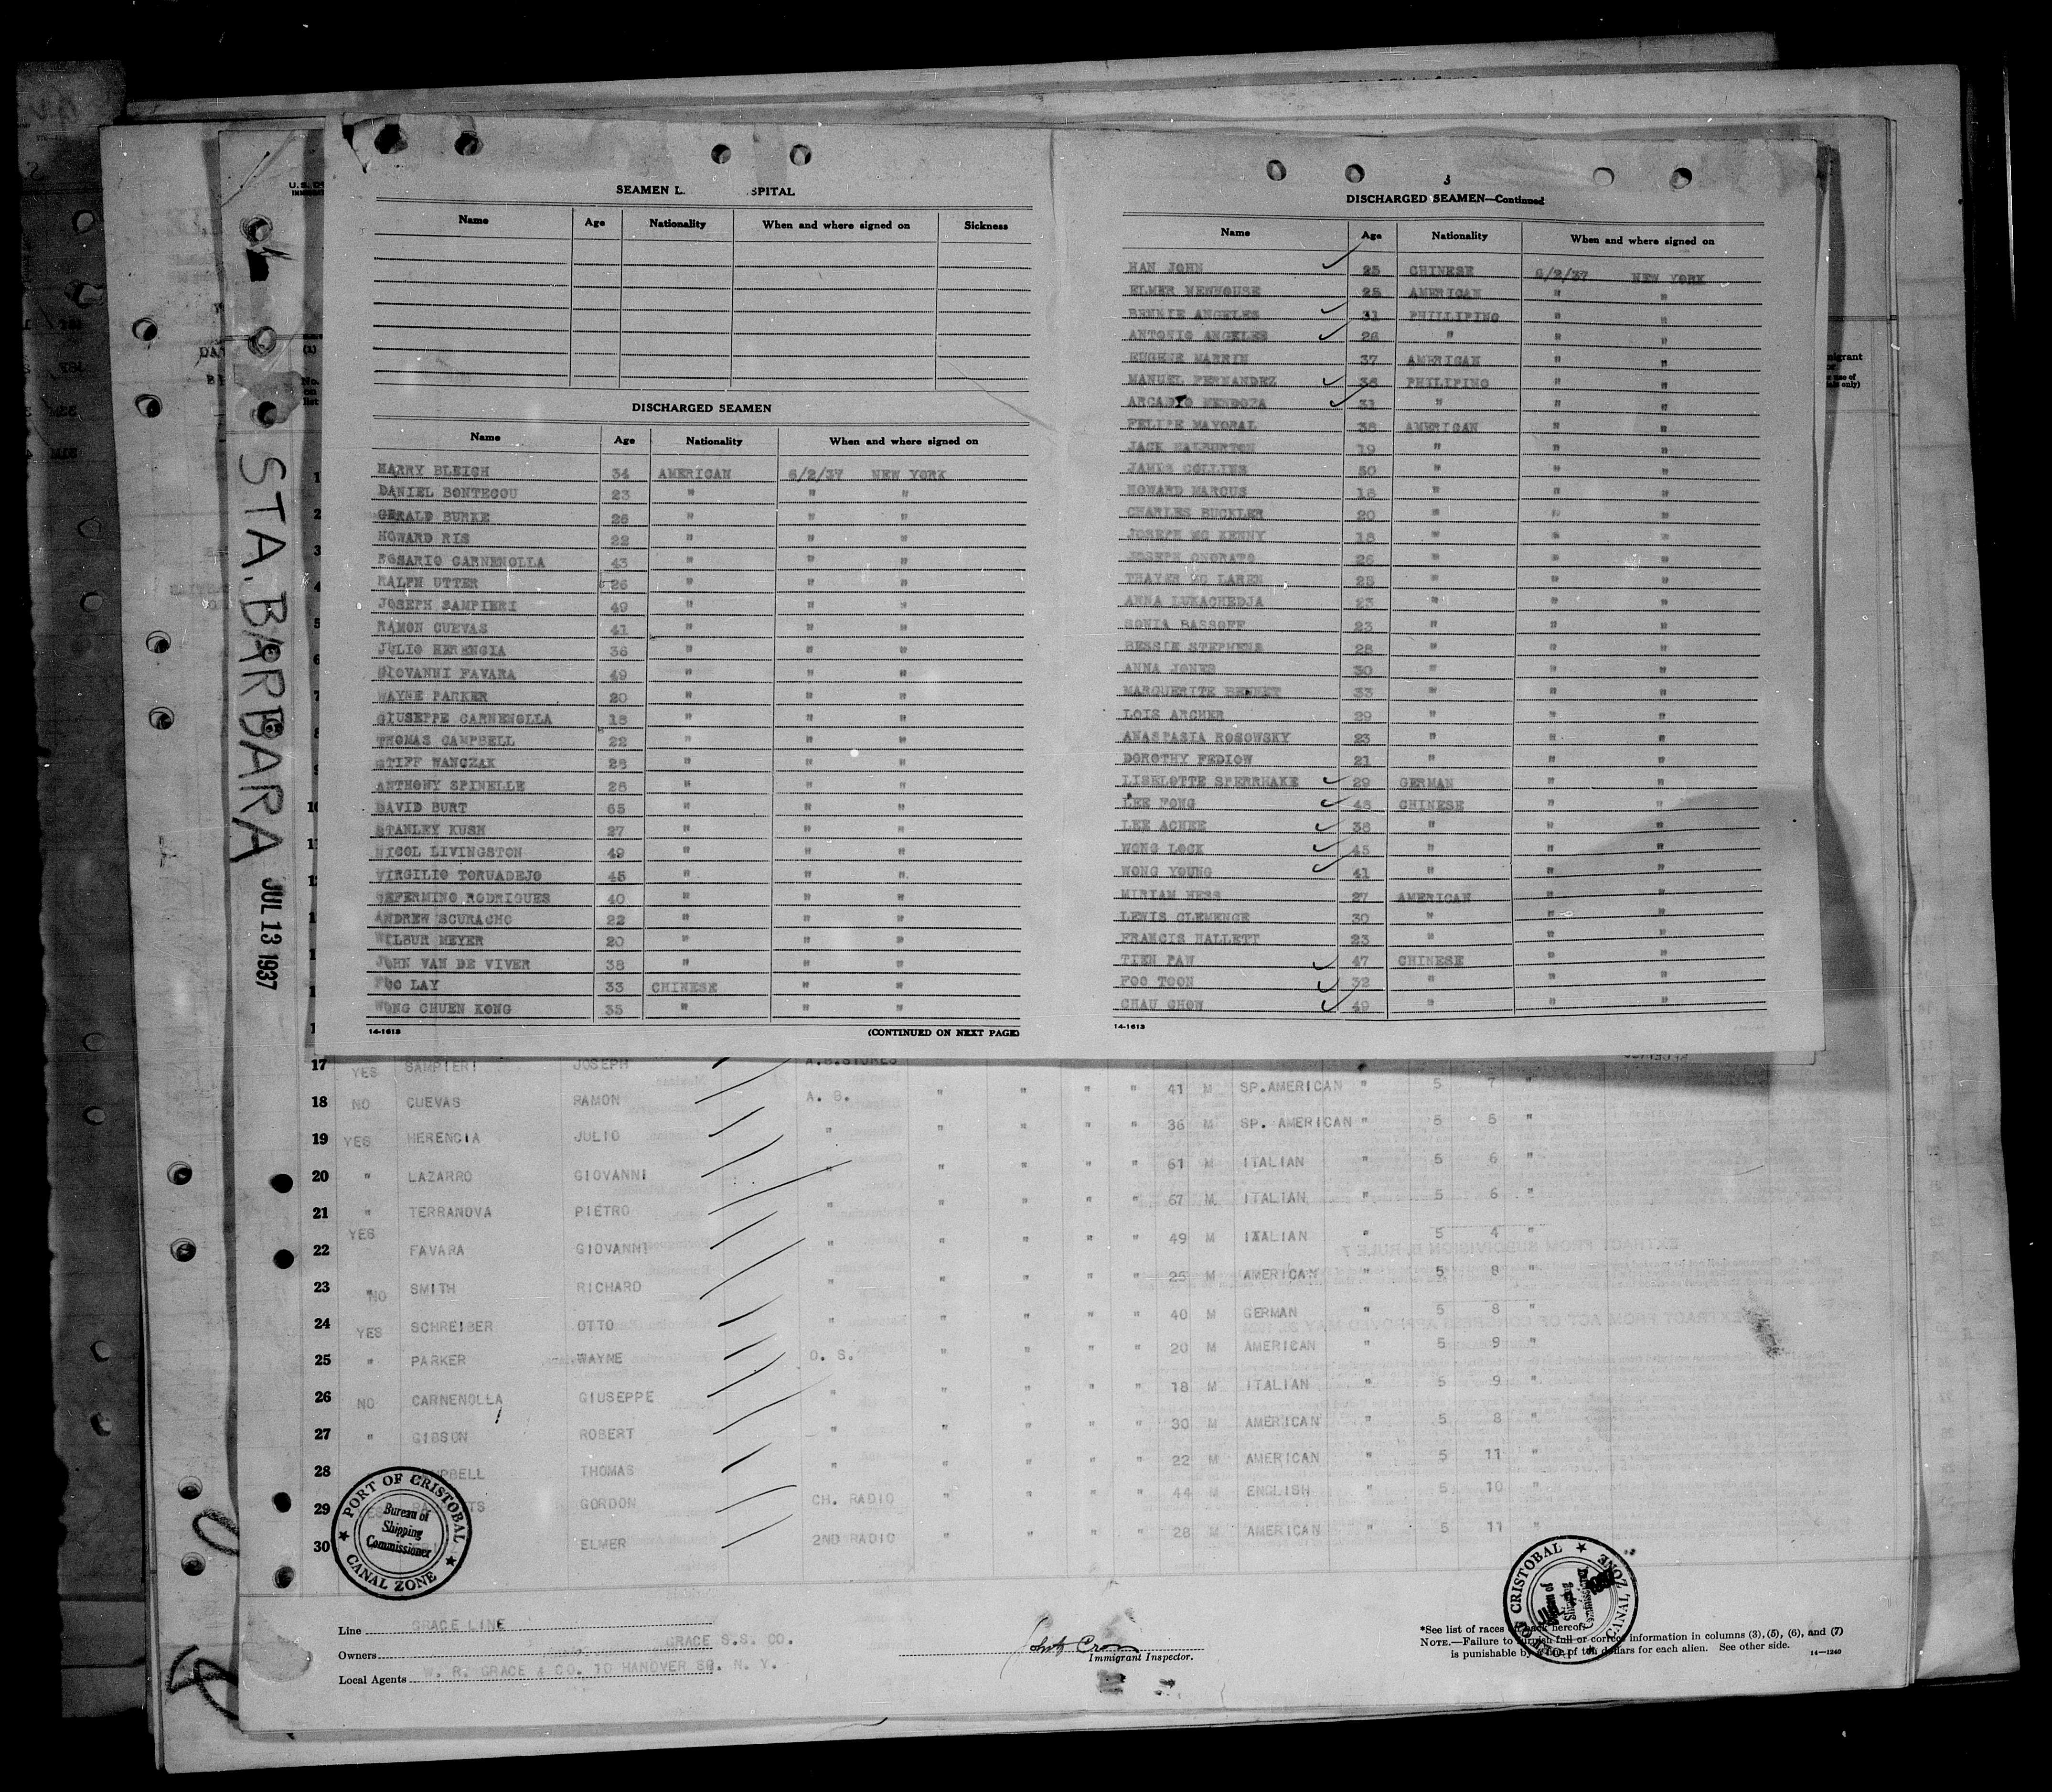 STA. BARBARA JUL 13 1937
SEAMEN L. SPITAL
Name Age Nationality When and where signed on Sickness
DISCHARGED SEAMEN
Name Age Nationality When and where signed on
HARRY BLEIGH 34 AMERICAN 6/2/37 NEW YORK
DANIEL BONTECOU 23 " " "
GERALD BURKE 25 " " "
HOWARD RIS 22 " " "
ROSARIO CARNENOLLA 43 " " "
RALPH UTTER 26 " " "
JOSEPH SAMPIERI 49 " " "
RAMON CUEVAS 41 " " "
JULIO HERENCIA 36 " " "
GIOVANNI FAVARA 49 " " "
WAYNE PARKER 20 " " "
GIUSEPPE CARNENOLLA 18 " " "
THOMAS CAMPBELL 22 " " "
STIFF WANCZAK 28 " " "
ANTHONY SPINELLE 28 " " "
DAVID BURT 65 " " "
STANLEY KUSH 27 " " "
NICOL LIVINGSTON 49 " " "
VIRGILIO TORUADEJO 45 " " "
CEFERMINO RODRIGUES 40 " " "
ANDREW SCURACHO 22 " " "
WILBUR MEYER 20 " " "
JOHN VAN DE VIVER 38 " " "
FOO LAY 33 CHINESE " "
WONG CHUEN KONG 35 " " "
14-1613 (CONTINUED ON NEXT PAGE)
3
DISCHARGED SEAMEN—Continued
Name Age Nationality When and where signed on
HAN JOHN 25 CHINESE 6/2/37 NEW YORK
ELMER NEWHOUSE 25 AMERICAN " "
BENNIE ANGELES 31 PHILLIPINO " "
ANTONIO ANGELES 26 " " "
EUGENE MARRIN 37 AMERICAN " "
MANUEL FERNANDEZ 36 PHILIPINO " "
ARCADIO MENDOZA 31 " " "
FELIPE MAYORAL 38 AMERICAN " "
JACK HALBURTON 19 " " "
JAMES COLLINS 50 " " "
HOWARD MARCUS 18 " " "
CHARLES BUCKLER 20 " " "
JOSEPH MC KENNY 18 " " "
JOSEPH ONORATO 26 " " "
THAYER MC LAREN 25 " " "
ANNA LUKACHEDJA 23 " " "
SONIA BASSOFF 23 " " "
BESSIE STEPHENS 28 " " "
ANNA JONES 30 " " "
MARGUERITE BENNET 33 " " "
LOIS ARCHER 29 " " "
ANASTASIA ROSOWSKY 23 " " "
DOROTHY FEDIOW 21 " " "
LISELOTTE SPERRHAKE 29 GERMAN " "
LEE FONG 48 CHINESE " "
LEE ACHEE 38 " " "
WONG LOCK 45 " " "
WONG YOUNG 41 " " "
MIRIAM HESS 27 AMERICAN " "
LEWIS CLEMENCE 30 " " "
FRANCIS HALLETT 23 " " "
TIEN PAW 47 CHINESE " "
FOO TOON 32 " " "
CHAU CHOW 49 " " "
14-1613
17 YES SAMPIERI JOSEPH A.B.STORES
18 NO CUEVAS RAMON A. B. " " " " 41 M SP.AMERICAN " 5 7 "
19 YES HERENCIA JULIO " " " " " 36 M SP. AMERICAN " 5 5 "
20 " LAZARRO GIOVANNI " " " " " 61 M ITALIAN " 5 6 "
21 " TERRANOVA PIETRO " " " " " 67 M ITALIAN " 5 6 "
22 YES FAVARA GIOVANNI " " " " " 49 M ITALIAN " 5 4 "
23 "NO SMITH RICHARD " " " " " 25 M AMERICAN " 5 8 "
24 YES SCHREIBER OTTO " " " " " 40 M GERMAN " 5 8 "
25 " PARKER WAYNE O. S. " " " " 20 M AMERICAN " 5 9 "
26 NO CARNENOLLA GIUSEPPE " " " " " 18 M ITALIAN " 5 9 "
27 " GIBSON ROBERT " " " " " 30 M AMERICAN " 5 8 "
28 THOMAS " " " " " 22 M AMERICAN " 5 11 "
29 GORDON CH. RADIO " " " " 44 M ENGLISH " 5 10 "
30 ELMER 2ND RADIO " " " " 28 M AMERICAN " 5 11 "
PORT OF CRISTOBAL
Bureau of Shipping Commissioner
CANAL ZONE
Line GRACE LINE
Owners GRACE S.S. CO.
Local Agents W. R. GRACE & CO. 10 HANOVER SQ. N. Y.
Immigrant Inspector.
*See list of races on back hereof.
NOTE.—Failure to furnish full or correct information in columns (3), (5), (6), and (7)
is punishable by a fine of ten dollars for each alien. See other side.
14—1240